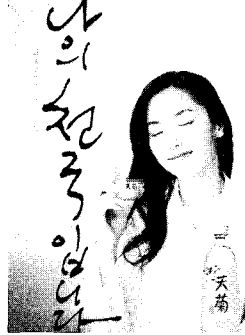 나의 천국입니다
天菊